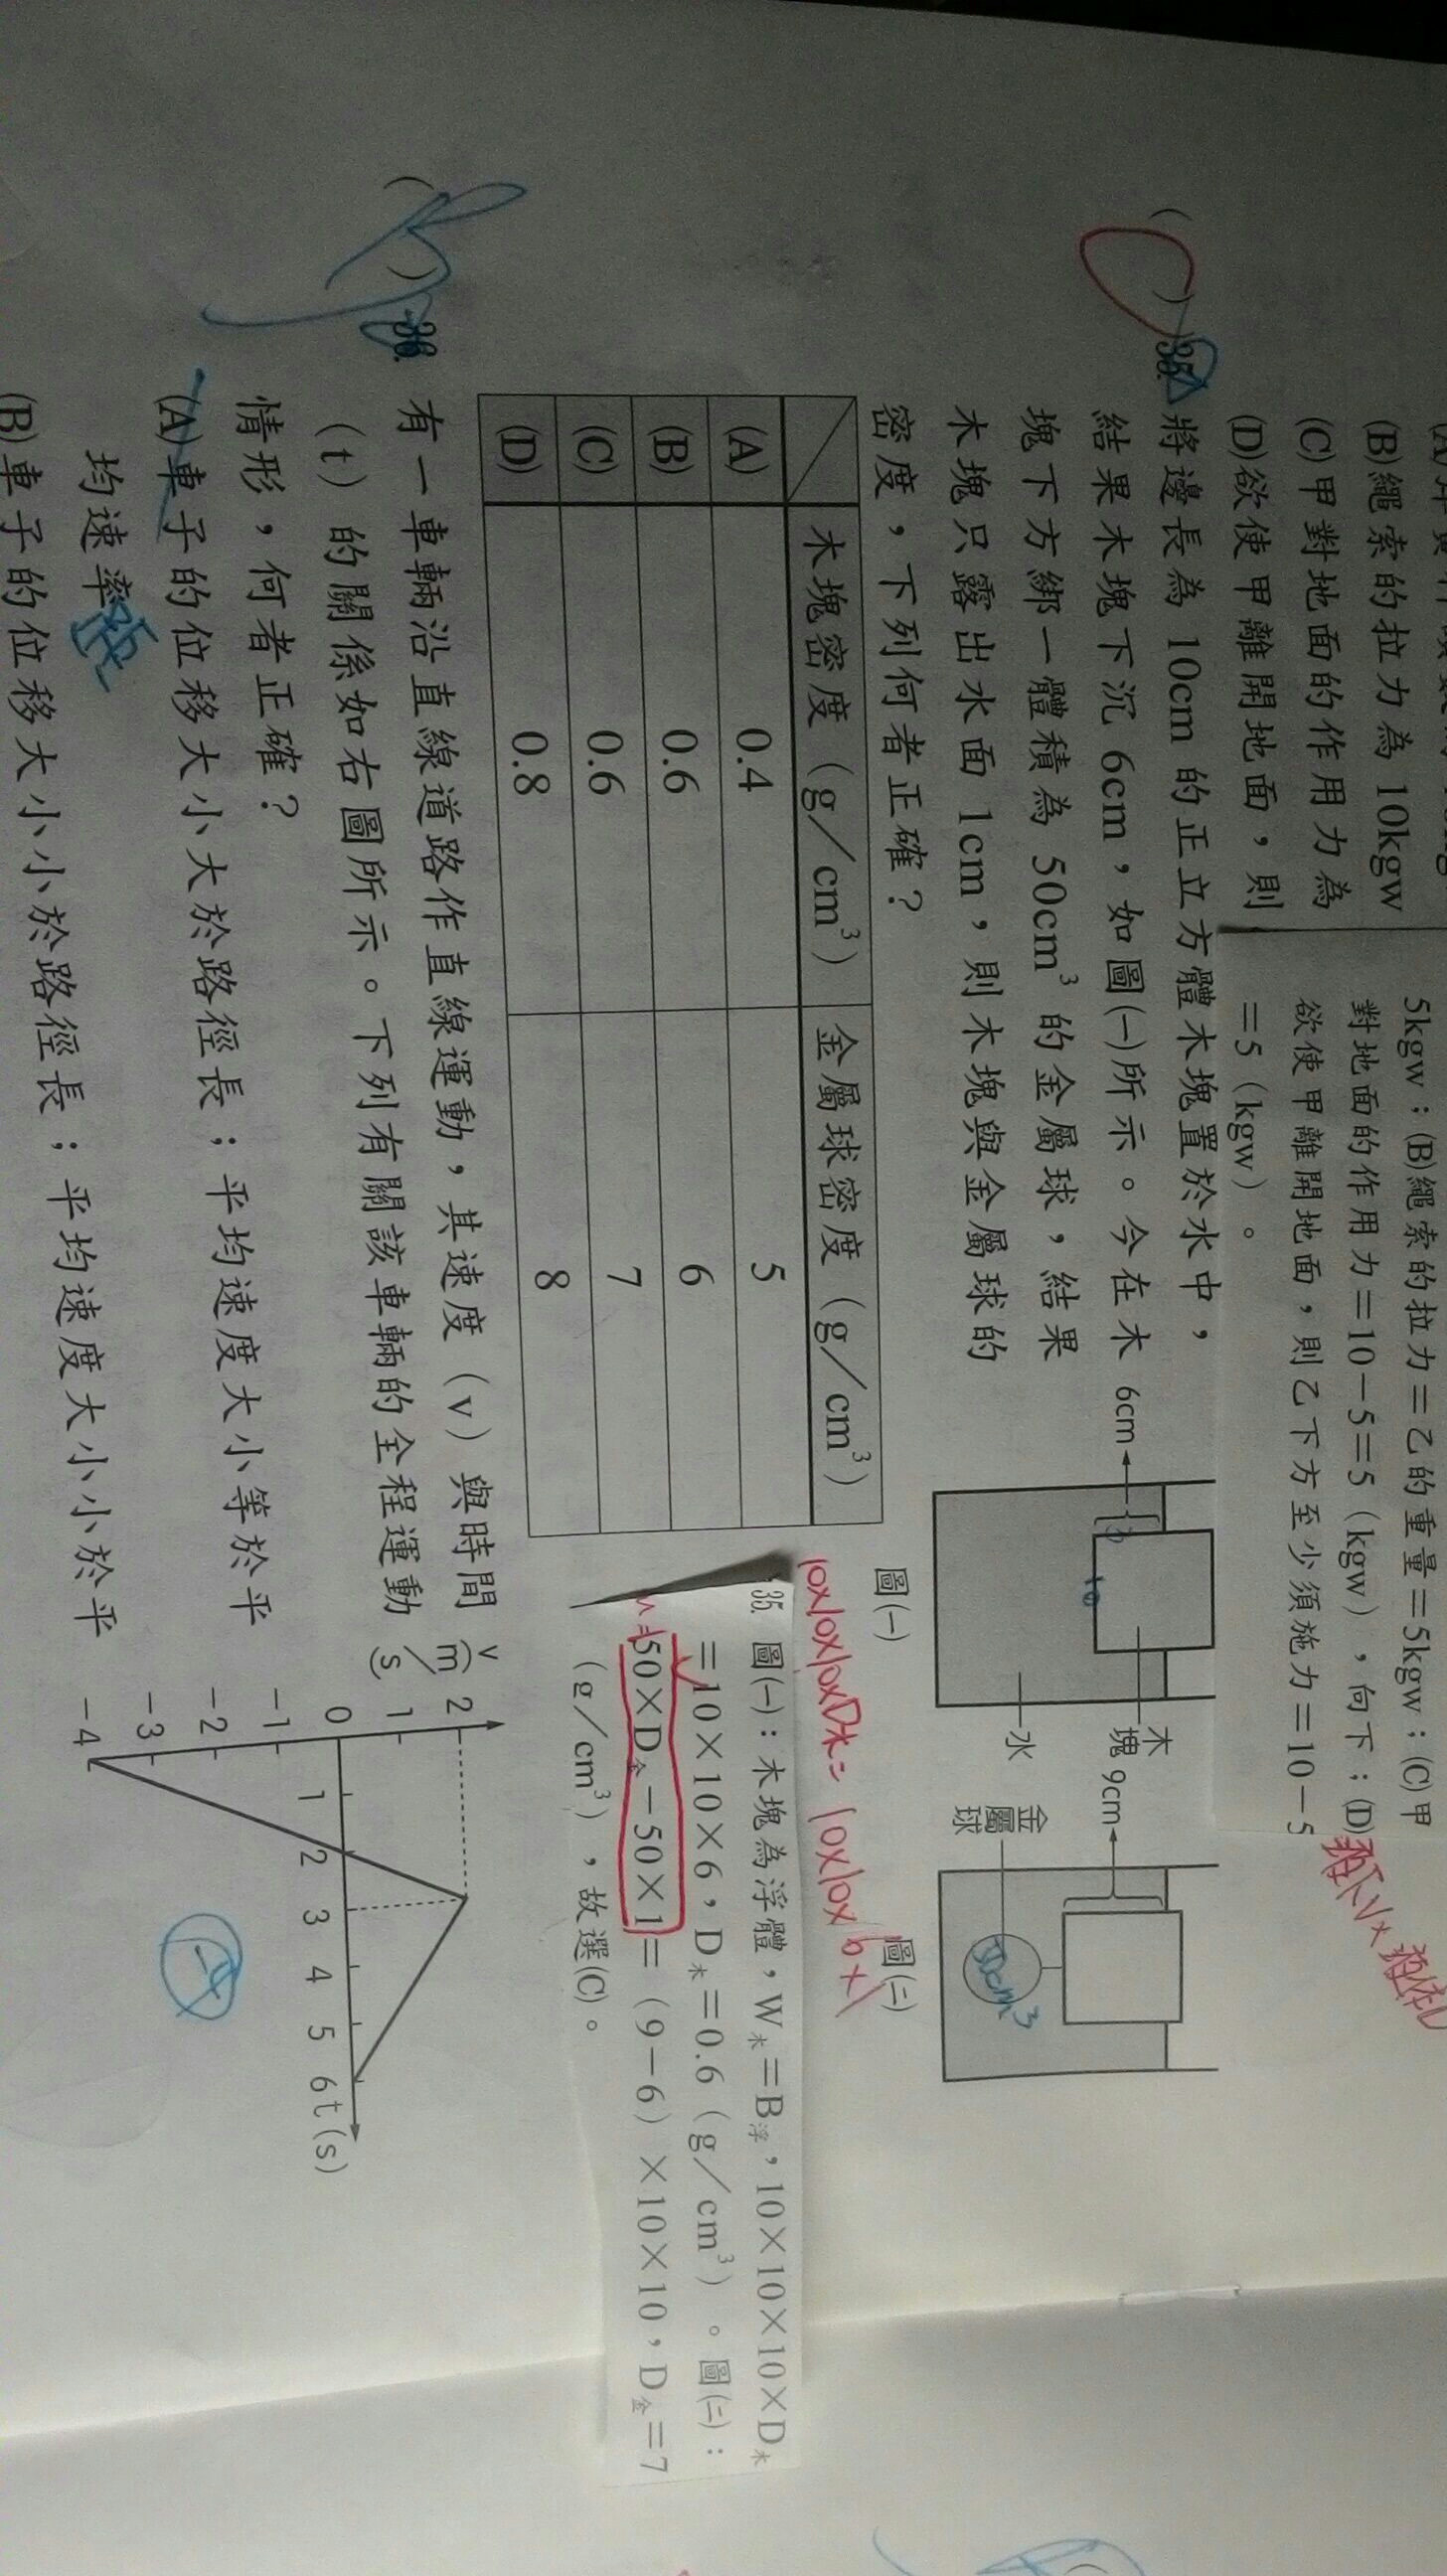 (B)繩索的拉力為 10kgw
(C)甲對地面的作用力為
(D)欲使甲離開地面，則
5kgw；(B)繩索的拉力＝乙的重量＝5kgw；(C)甲
對地面的作用力＝10－5＝5（kgw），向下；(D)
欲使甲離開地面，則乙下方至少須施力＝10－5
＝5（kgw）。
( )35.
將邊長為 10cm 的正立方體木塊置於水中，
結果木塊下沉 6cm，如圖(一)所示。今在木
塊下方綁一體積為 50cm³ 的金屬球，結果
木塊只露出水面 1cm，則木塊與金屬球的
密度，下列何者正確？
6cm
10
木塊
水
圖(一)
9cm
金屬球
50cm³
圖(二)
木塊密度（g／cm³） 金屬球密度（g／cm³）
(A) 0.4 5
(B) 0.6 6
(C) 0.6 7
(D) 0.8 8
10×10×10×D木= 10×10×6×1
35. 圖(一)：木塊為浮體，W木＝B浮，10×10×10×D木
＝10×10×6，D木＝0.6（g／cm³）。圖(二)：
50×D金－50×1＝（9－6）×10×10，D金＝7
（g／cm³），故選(C)。
( )36.
有一車輛沿直線道路作直線運動，其速度（v）與時間
（t）的關係如右圖所示。下列有關該車輛的全程運動
情形，何者正確？
(A)車子的位移大小大於路徑長；平均速度大小等於平
均速率
(B)車子的位移大小小於路徑長；平均速度大小小於平
v(m/s)
2
1
0
-1
-2
-3
-4
1 2 3 4 5 6 t(s)
-4